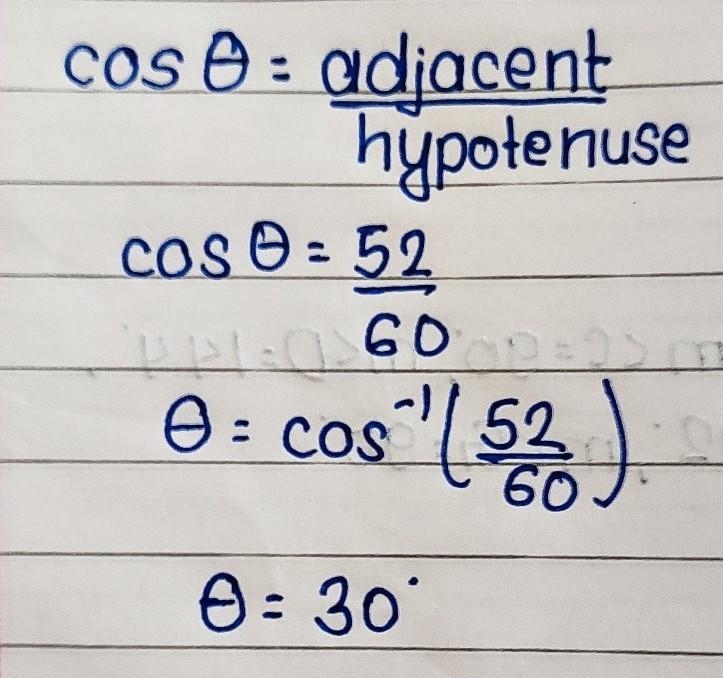 cos θ = adjacent
hypotenuse
cos θ = 52
60
θ = cos⁻¹(52/60)
θ = 30°